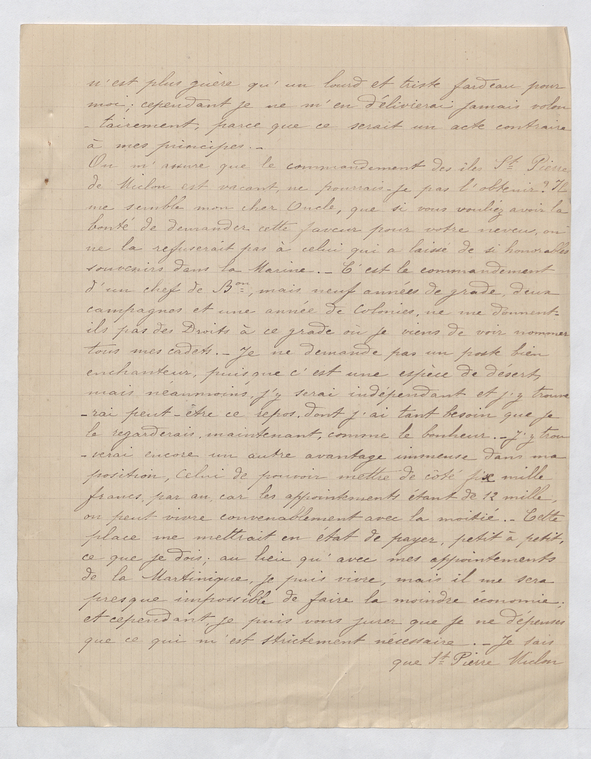 n'est plus guère qu'un lourd et triste fardeau pour
moi; cependant je ne m'en délivrerai jamais volon
-tairement, parce que ce serait un acte contraire
à mes principes. -
On m'assure que le commandement des iles St. Pierre
de Miclon est vacant, ne pourrais-je pas l'obtenir? Il
me semble mon cher Oncle, que si vous vouliez avoir la
bonté de demander cette faveur pour votre neveu, on
ne la refuserait pas à celui qui a laissé de si honorables
souvenirs dans la Marine. - C'est le commandement
d'un chef de Bon, mais neuf années de grade, deux
campagnes et une année de Colonies, ne me donnent-
ils pas des Droits à ce grade où je viens de voir nommer
tous mes cadets. - Je ne demande pas un poste bien
enchanteur, puisque c'est une espèce de désert,
mais néanmoins, j'y serai indépendant et j'y trouve
-rai peut-être ce repos dont j'ai tant besoin que je
le regarderais, maintenant, comme le bonheur. - J'y trou
-verai encore un autre avantage immense dans ma
position, Celui de pouvoir mettre de côté six mille
francs, par an, car les appointements étant de 12 mille,
on peut vivre convenablement avec la moitié. - Cette
place me mettrait en état de payer, petit à petit,
ce que je dois; au lieu qu'avec mes appointements
de la Martinique, je puis vivre, mais il me sera
presque impossible de faire la moindre économie;
et cependant, je puis vous jurer que je ne dépense
que ce qui m'est strictement nécessaire. - Je sais
que St. Pierre Miclon